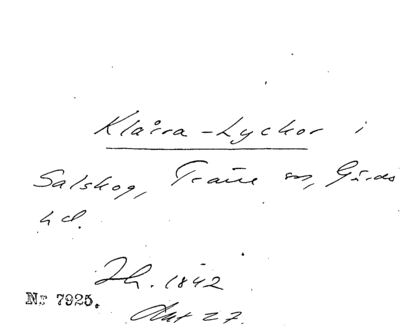 Klårra-Lyckor i
Salskog, Träne sn, Gärds
hd.
Jh. 1842
Akt 27.
Nr 7925.